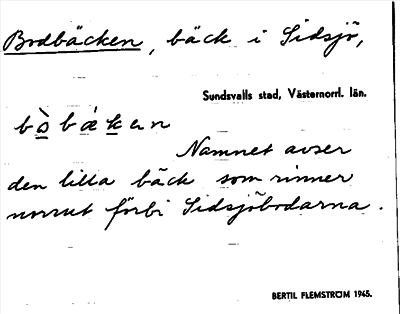 Bodbäcken, bäck i Sidsjö,
Sundsvalls stad, Västernorrl. län.
bò̲bǽk̲en
Namnet avser
den lilla bäck som rinner
norrut förbi Sidsjöbodarna.
BERTIL FLEMSTRÖM 1965.